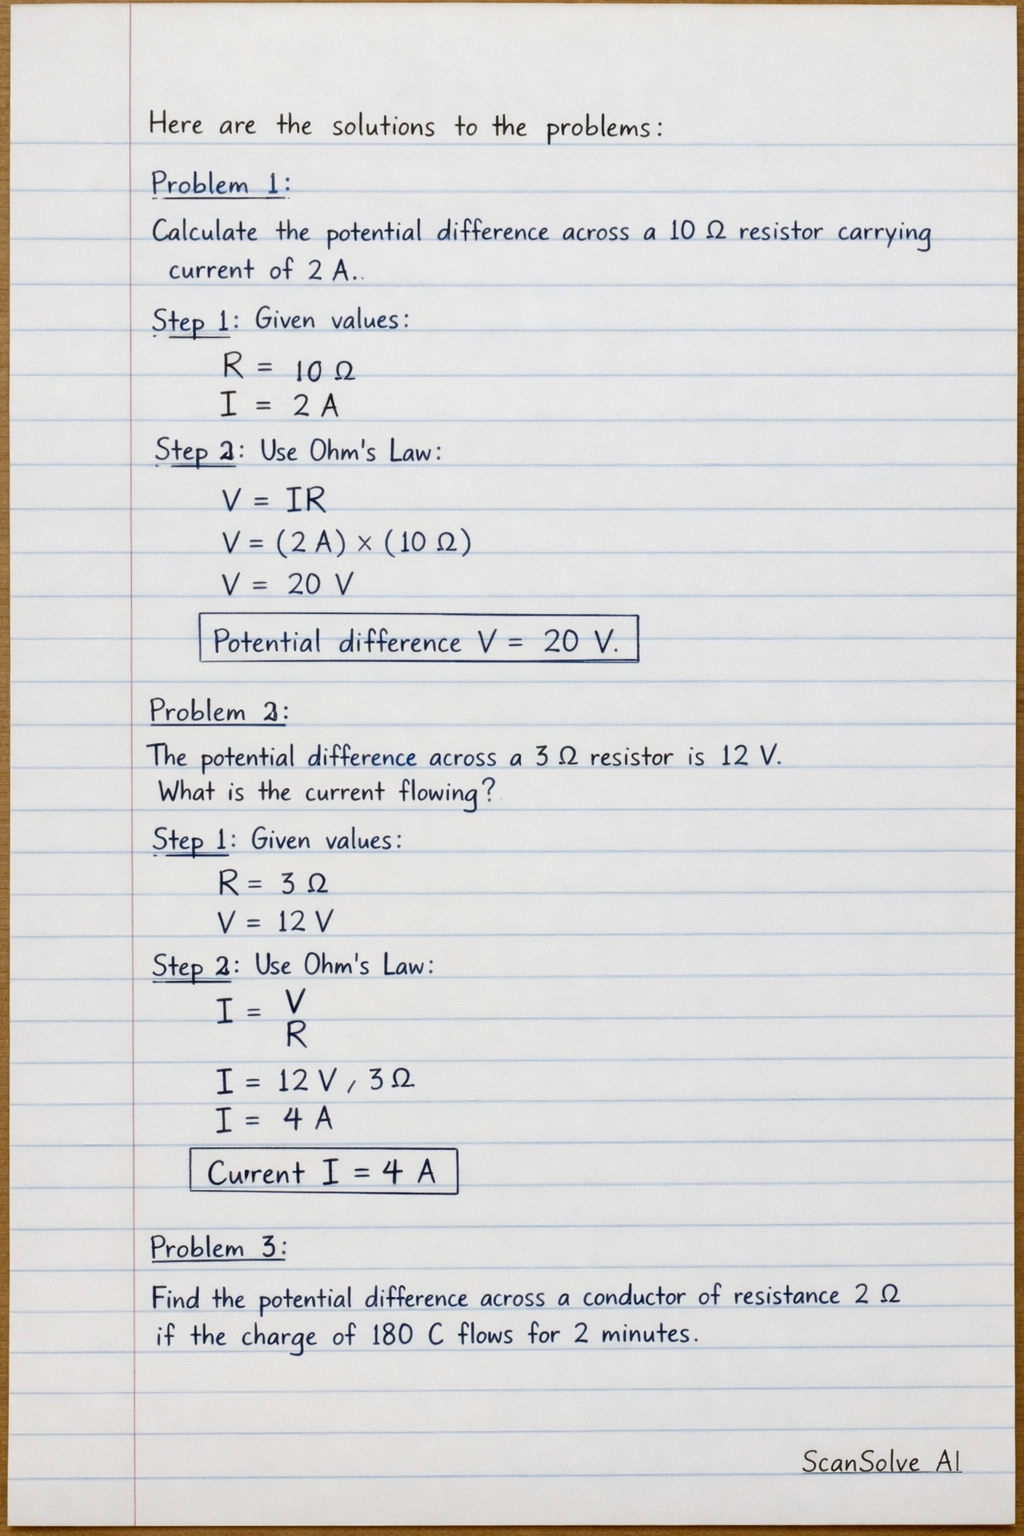 Here are the solutions to the problems:
Problem 1:
Calculate the potential difference across a 10 Ω resistor carrying
current of 2 A..
Step 1: Given values:
R = 10 Ω
I = 2 A
Step 2: Use Ohm's Law:
V = IR
V = (2 A) × (10 Ω)
V = 20 V
Potential difference V = 20 V.
Problem 2:
The potential difference across a 3 Ω resistor is 12 V.
What is the current flowing?
Step 1: Given values:
R = 3 Ω
V = 12 V
Step 2: Use Ohm's Law:
I = V
R
I = 12 V / 3 Ω
I = 4 A
Current I = 4 A
Problem 3:
Find the potential difference across a conductor of resistance 2 Ω
if the charge of 180 C flows for 2 minutes.
ScanSolve AI